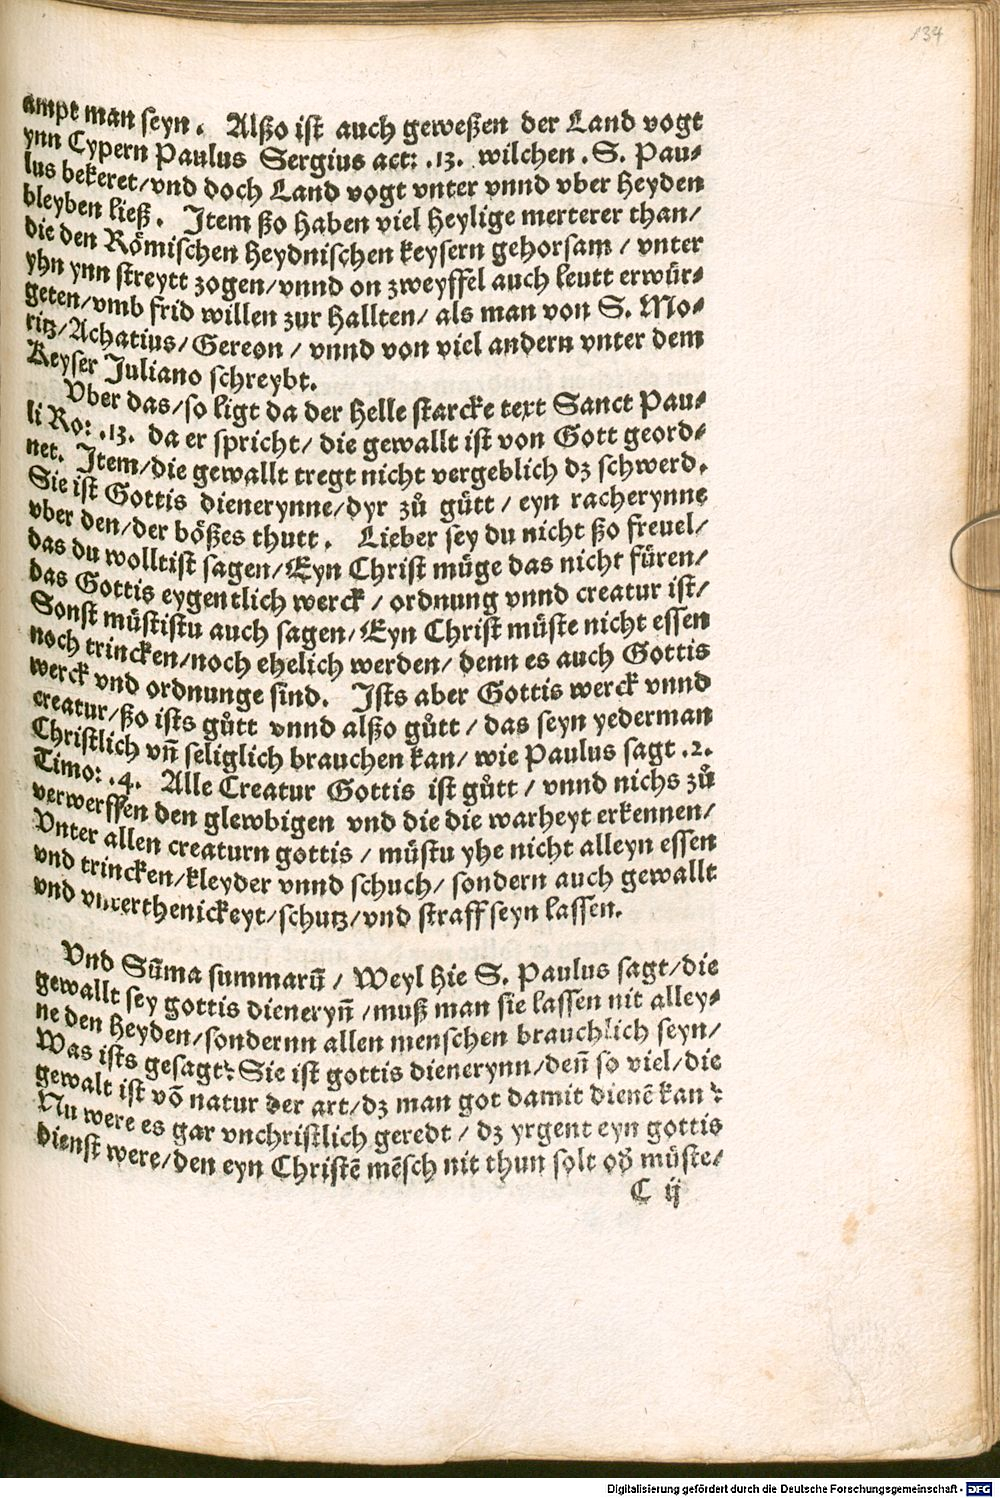 134
ampt man seyn. Alßo ist auch geweßen der Land vogt
ynn Cypern Paulus Sergius act: .13. wilchen .S. Pau⸗
lus bekeret/vnd doch Land vogt vnter vnnd vber Heyden
bleyben ließ. Item ßo haben viel heylige merterer than/
die den Römischen heydnischen keysern gehorsam / vnter
yhn ynn streytt zogen/vnnd on zweyffel auch leutt erwür⸗
geten/vmb frid willen zur hallten/ als man von S. Mo⸗
ritz/Achatius/Gereon / vnnd von viel andern vnter dem
Keyser Juliano schreybt.
Vber das/so ligt da der helle starcke text Sanct Pau⸗
li Ro: .13. da er spricht/ die gewallt ist von Gott geord⸗
net. Item/die gewallt tregt nicht vergeblich dz schwerd.
Sie ist Gottis dienerynne/dyr zů gůtt / eyn racherynne
vber den/der bößes thutt. Lieber sey du nicht ßo freuel/
das du wolltist sagen/Eyn Christ müge das nicht füren/
das Gottis eygentlich werck / ordnung vnnd creatur ist/
Sonst müstistu auch sagen/Eyn Christ müste nicht essen
noch trincken/noch ehelich werden/ denn es auch Gottis
werck vnd ordnunge sind. Ists aber Gottis werck vnnd
creatur/ßo ists gůtt vnnd alßo gůtt / das seyn yederman
Christlich vn̄ seliglich brauchen kan/ wie Paulus sagt .2.
Timo: .4. Alle Creatur Gottis ist gůtt / vnnd nichs zů
verwerffen den glewbigen vnd die die warheyt erkennen/
Vnter allen creaturn gottis / müstu yhe nicht alleyn essen
vnd trincken/kleyder vnnd schuch/ sondern auch gewallt
vnd vnterthenickeyt/schutz/vnd straff seyn lassen.
Vnd Sūma summarū / Weyl hie S. Paulus sagt/die
gewallt sey gottis dieneryn̄ /muß man sie lassen nit alley⸗
ne den Heyden/sondernn allen menschen brauchlich seyn/
Was ists gesagt? Sie ist gottis dienerynn/den̄ so viel/die
gewalt ist vō natur der art/dz man got damit dienē kan ?
Nu were es gar vnchristlich geredt / dz yrgent eyn gottis
dienst were/den eyn Christē mēsch nit thun solt oď müste/
C ij
Digitalisierung gefördert durch die Deutsche Forschungsgemeinschaft - DFG